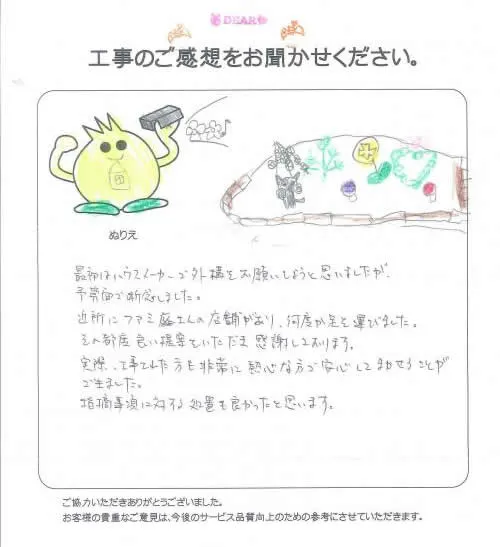 DEAR
工事のご感想をお聞かせください。
ぬりえ
最初はハウスメーカーで外構をお願いしようと思いましたが、
予算面で断念しました。
近所にファミ庭さんの店舗があり、何度か足を運びました。
その都度良い提案をいただき感謝しております。
実際、工事された方も非常に熱心な方で安心してまかせることが
できました。
指摘事項に対する処置も良かったと思います。
ご協力いただきありがとうございました。
お客様の貴重なご意見は、今後のサービス品質向上のための参考にさせていただきます。